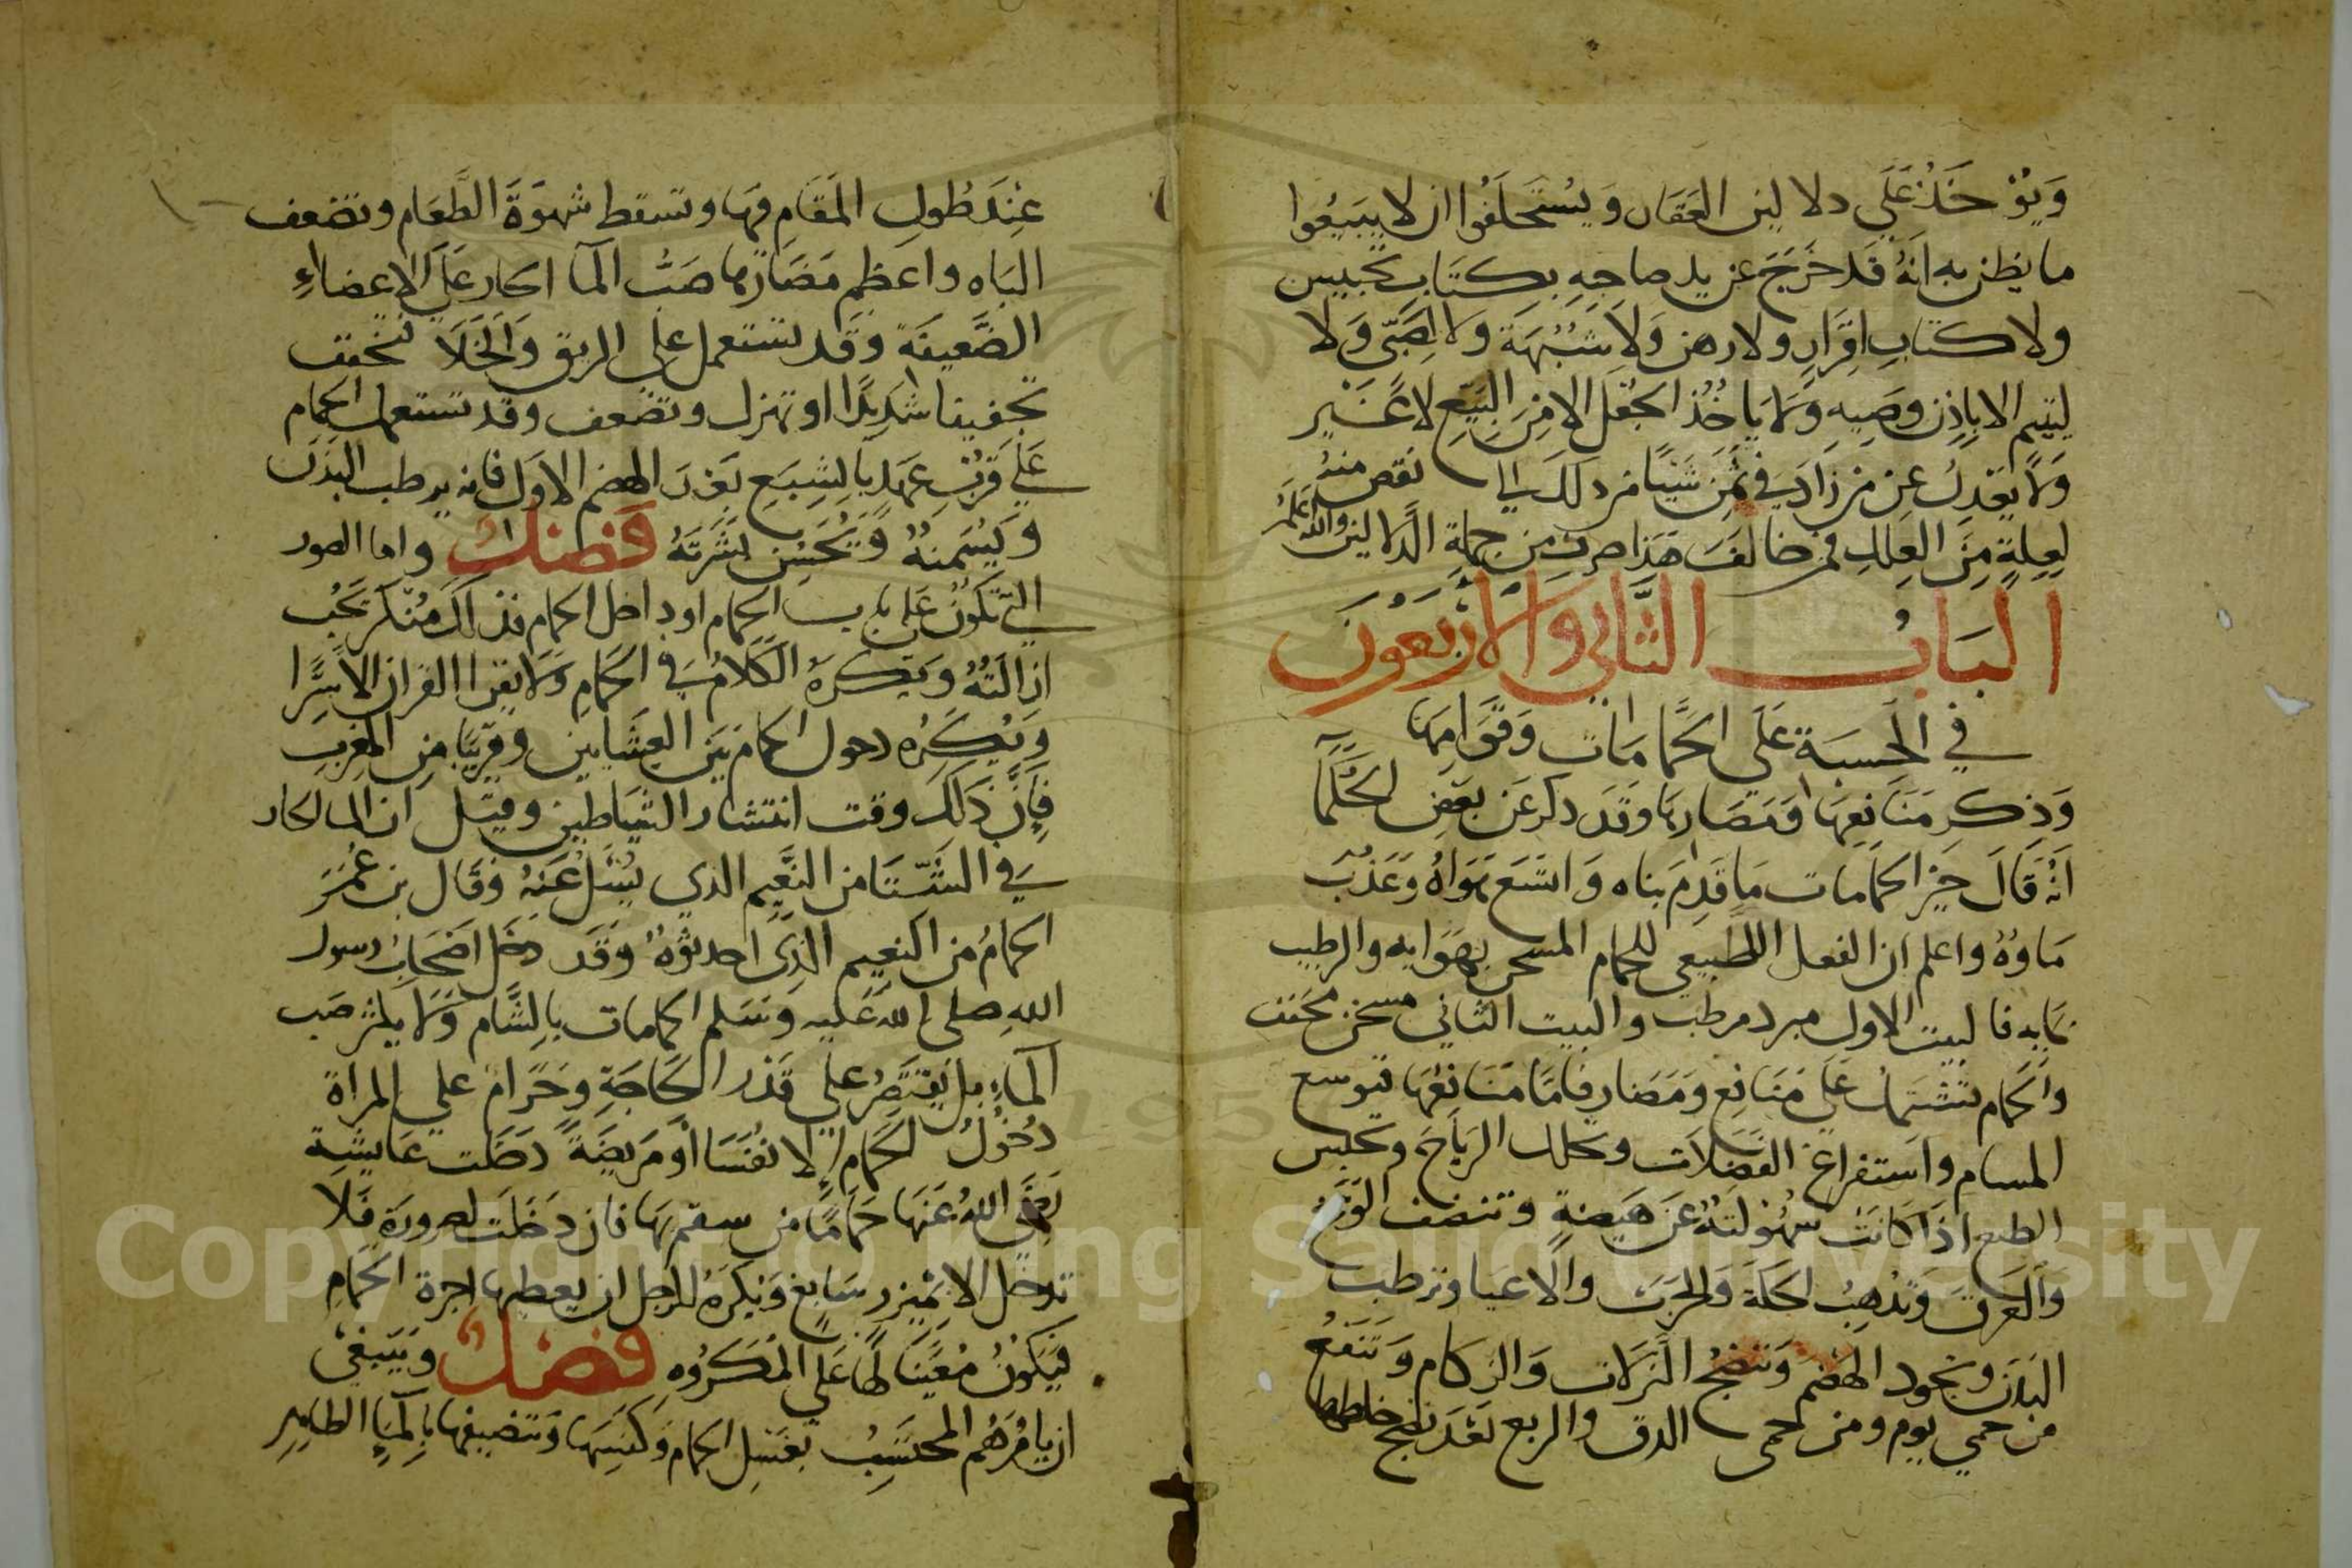 وَيُوْخَذُ عَلَي دلالين العَقَار وَيُسْتَحلَفُوا ان لا يبيعُوا
ما يظن به انهُ قَد خَرَجَ عن يد صاحبِهِ بكتَابِ تحبيس
ولا كتابِ اقرَارٍ ولا رهن وَلَا شُبْهَة ولا لصَبّي وَلا
ليتيم الا باِذن وصَيه وَلا يَاخُذ الجُعْل الا مِن البَيعِ لا غَيْر
وَلا يَعْدِلُ عن من زادَ في ثمن شَيئا من ذلك الي نقص منه
لعِلةٍ مِنَ العِللِ فمن خالَفَ هَذا صرف مِن جملةِ الدلالين والله اعلم
البَابُ الثَّاني وَالأربَعُونَ
في الحِسبَة عَلَي الحَمَّامَات وَقَوَامِهَا
وَذِكر مَنَافِعهَا وَمَضَارهَا وَقَد ذكر عَن بَعض الحُكَمَآ
انهُ قَالَ خَيرُ الحمامَات مَا قَدِمَ بناه وَاتسَع هَوَاهُ وَعَذُبَ
مَاوُهُ واعلم ان الفعل الطَبيعي للحمام المسخن بهَوايه والرطيب
بمَايه فالبيت الاول مبرد مرطب والبيت الثاني مسخن مخفف
وَالحَمام تشتمل عَلي مَنَافع وَمَضَار فامَّا مَنَافعُهَا فتوسع
المسام واستفراغ الفضلات وتحلل الرياح وتحبس
الطبع اذا كَانَت سهُولتهُ عَن هَيضةٍ وتنضف الوَسَخ
وَالعَرَق وَتُذهِبُ الحكة وَالجَرَب والاعيا وترطب
البَدَن وتجود الهضم وَتنضجُ النزلات وَالزكام وَتَنْفَعُ
من حمي يوم ومن حمي الدق والربع بَعْدَ نضج خلطها
عِندَ طُولِ المَقَام فيهَا وتسقط شهوَةَ الطَّعَام وتضعف
البَاه واعظم مَضَارها صَبُّ المآ الحار عَلَي الاعضاءِ
الضَّعيفَة وَقَد تستعمل عَلي الريق وَالخَلا فتخفف
تخفيفا شديدًا او تهزل وتضعف وقد تستعمل الحمام
عَلَي قربِ عهدٍ بالشِبَعِ بَعْدَ الهضم الاول فانه يرطب البَدَن
وَيُسَمنهُ وَيُحَسِن بشَرَتَهُ فَصْلٌ واما الصور
التي تَكُونُ عَلي باب الحمام او داخل الحمام فذلك مُنكَر تَجبُ
ازالَتهُ وَيكرهُ الكَلام في الحمامِ وَلا يقرا القران الا سِرًّا
وَيُكرَه دخول الحمَام بَيَن العِشَايين وقرَيبًا مِن المغرِبِ
فإنَّ ذَلك وقت انتشار الشياطين وقيل ان الما الحار
في الشتَا من النَعِيم الذي يُسْئَلُ عَنهُ وَقَال بن عُمَر
الحمامُ من النعِيم الذِي احدثوهُ وَقَد دخل اصحَابُ رسول
الله صلي الله عَليه وَسَلم الحمامات بالشَّام وَلا يكثر صَب
المآءِ بل يقتَصِرُ علي قَدْر الحَاجَةِ وحَرَام علي المراة
دُخُولُ الحَمَام إلا نُفَسَا أَو مَريضَة دَخَلت عَايشة
رَضِيَ اللهُ عَنهَا حَمَامًا من سقم بهَا فان دَخَلَت لضرورة فَلا
تدخل الا بمئزر سَابغ وَيكرَهُ للرجل ان يعطيها اجرة الحَمام
فيَكُونُ مُعَيّنَا لهَا عَلَي المكرُوه فَصْلٌ وَينبغي
ان يامُرَهُم المحتَسِبُ بغَسل الحمام وكنسِهَا وَتنضيفها بالمآءِ الطاهِر